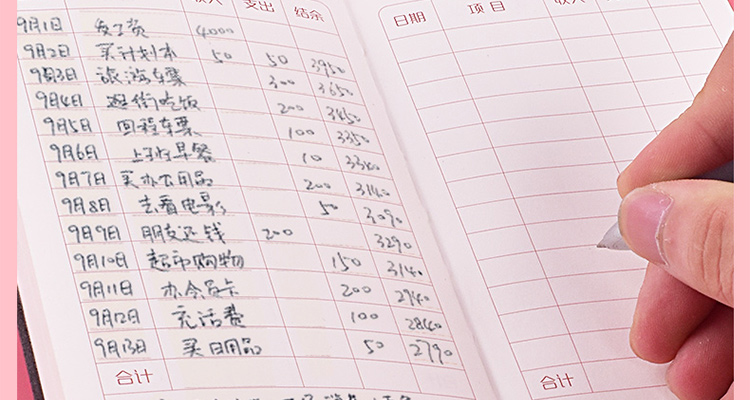 收入 支出 结余
日期 项目 收入
9月1日 发工资 4000
9月2日 买计划本 50 50 3950
9月3日 旅游车票 300 3650
9月4日 逛街吃饭 200 3450
9月5日 回程车票 100 3350
9月6日 上班早餐 10 3340
9月7日 买办公用品 200 3140
9月8日 去看电影 50 3090
9月9日 朋友还钱 200 3290
9月10日 超市购物 150 3140
9月11日 办会员卡 200 2940
9月12日 充话费 100 2840
9月13日 买日用品 50 2790
合计
合计